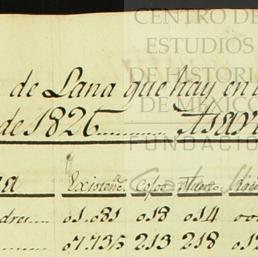 CENTRO DE
ESTUDIOS
DE HISTORIA
DE MÉXICO
FUNDACIÓN
de Lana que hay en
de 1826
Existen.e Copo
dres 01.081 018 014 00
07.735 213 218 012